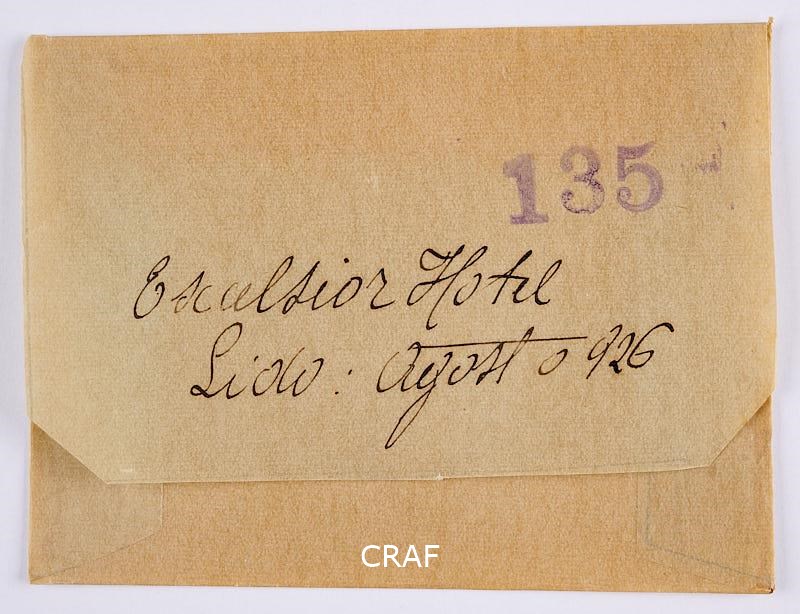 135
Excelsior Hotel
Lido: Agosto 926
CRAF